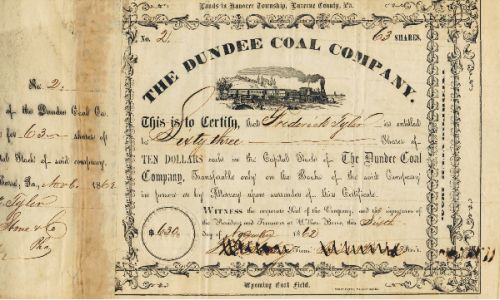 Lands in Hanover Township, Luzerne County, Pa.
No. 2.
63 SHARES.
THE DUNDEE COAL COMPANY.
This is to Certify, that Frederick Tyler is entitled
to Sixty three Shares of
TEN DOLLARS each in the Capital Stock of The Dundee Coal
Company, Transferable only on the Books of the said Company
in person or by Attorney upon surrender of this Certificate.
WITNESS the corporate Seal of the Company, and the signatures of
the President and Treasurer at Wilkes Barre, this Sixth
day of November 1862
$ 630.
Wyoming Coal Field.
No. 2.
of the Dundee Coal Co.
for 63 shares of
Stock of said company.
Pa., Nov 6. 1862
Tyler